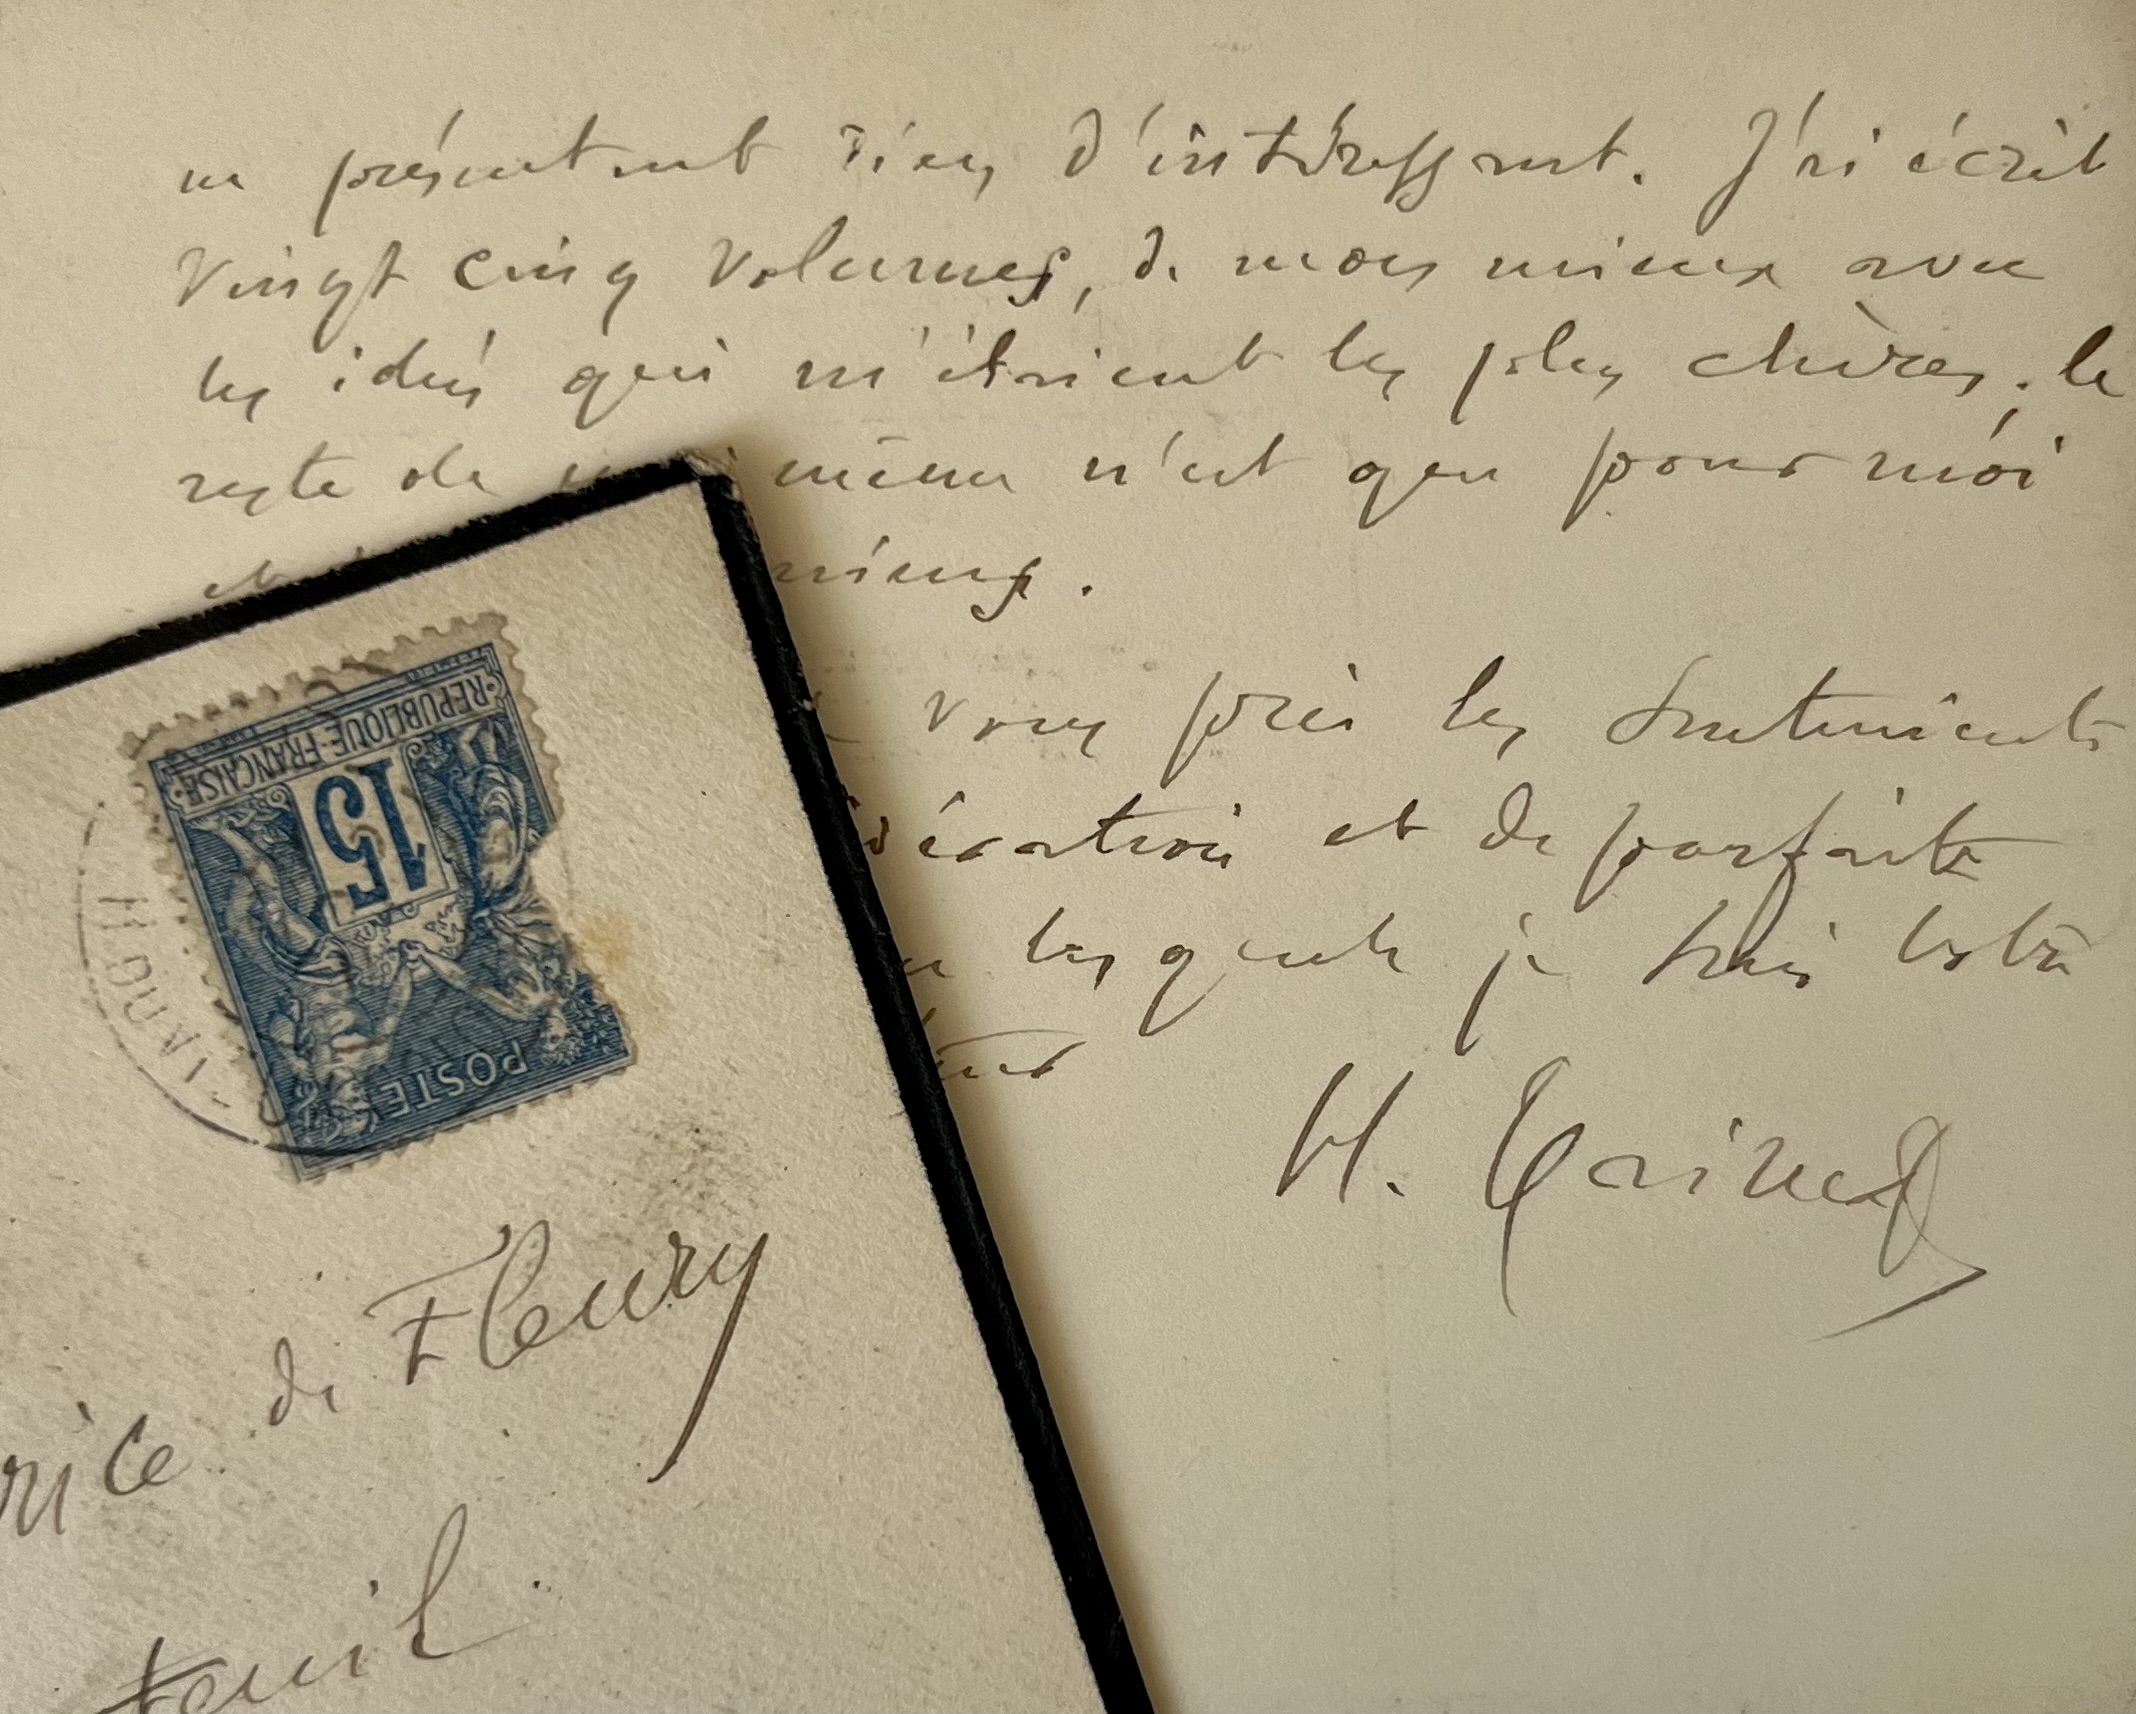 ne présentent rien d'intéressant. J'ai écrit
vingt cinq volumes, de mon mieux avec
les idées qui m'étaient les plus chères; le
reste de moi même n'est que pour moi
et miens.
vous prie les sentiments
dération et de parfaite
lesquels je suis votre
H. Taine
REPUBLIQUE FRANCAISE
15
POSTE
rice de Fleury